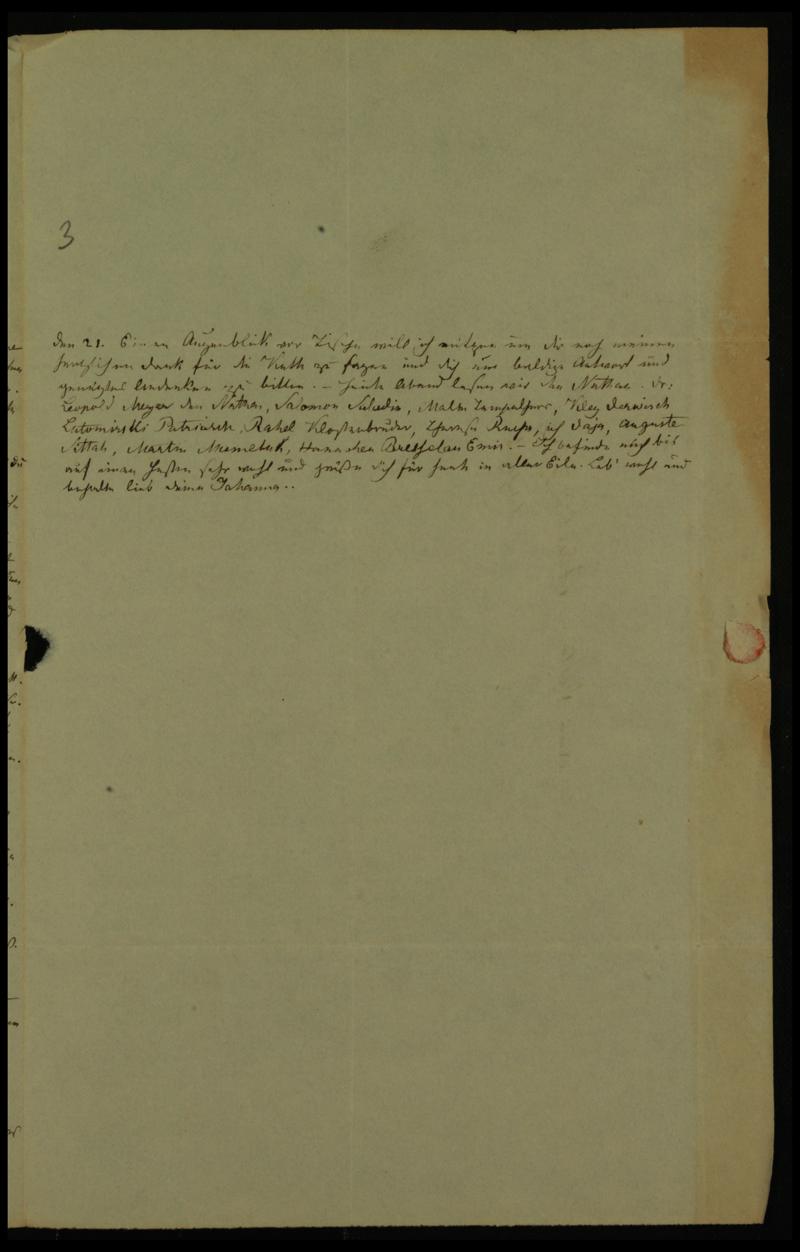 3
den 21. Einen Augenblick vor Tische will ich nutzen um dir noch meinen
herzlichen Dank für die Kette zu sagen und dich um baldige Antwort und
geneigtes Andenken zu bitten. – Heute Abend lesen wir den Nathan. Dr:
Leopold Meyer den Nathan, Salomon Saladin, Malm Tempelherr, Kley Derwisch
Lutomirski Patriarch, Rahel Klosterbruder, Recha, ich Daja, Auguste
Sittah, Martin Mameluck, Hannchen Bresselau Emir. – Ich befinde mich bis
auf einen Husten sehr wohl und grüße dich für heute in aller Eile. Leb' wohl und
behalte lieb deine Johanna..